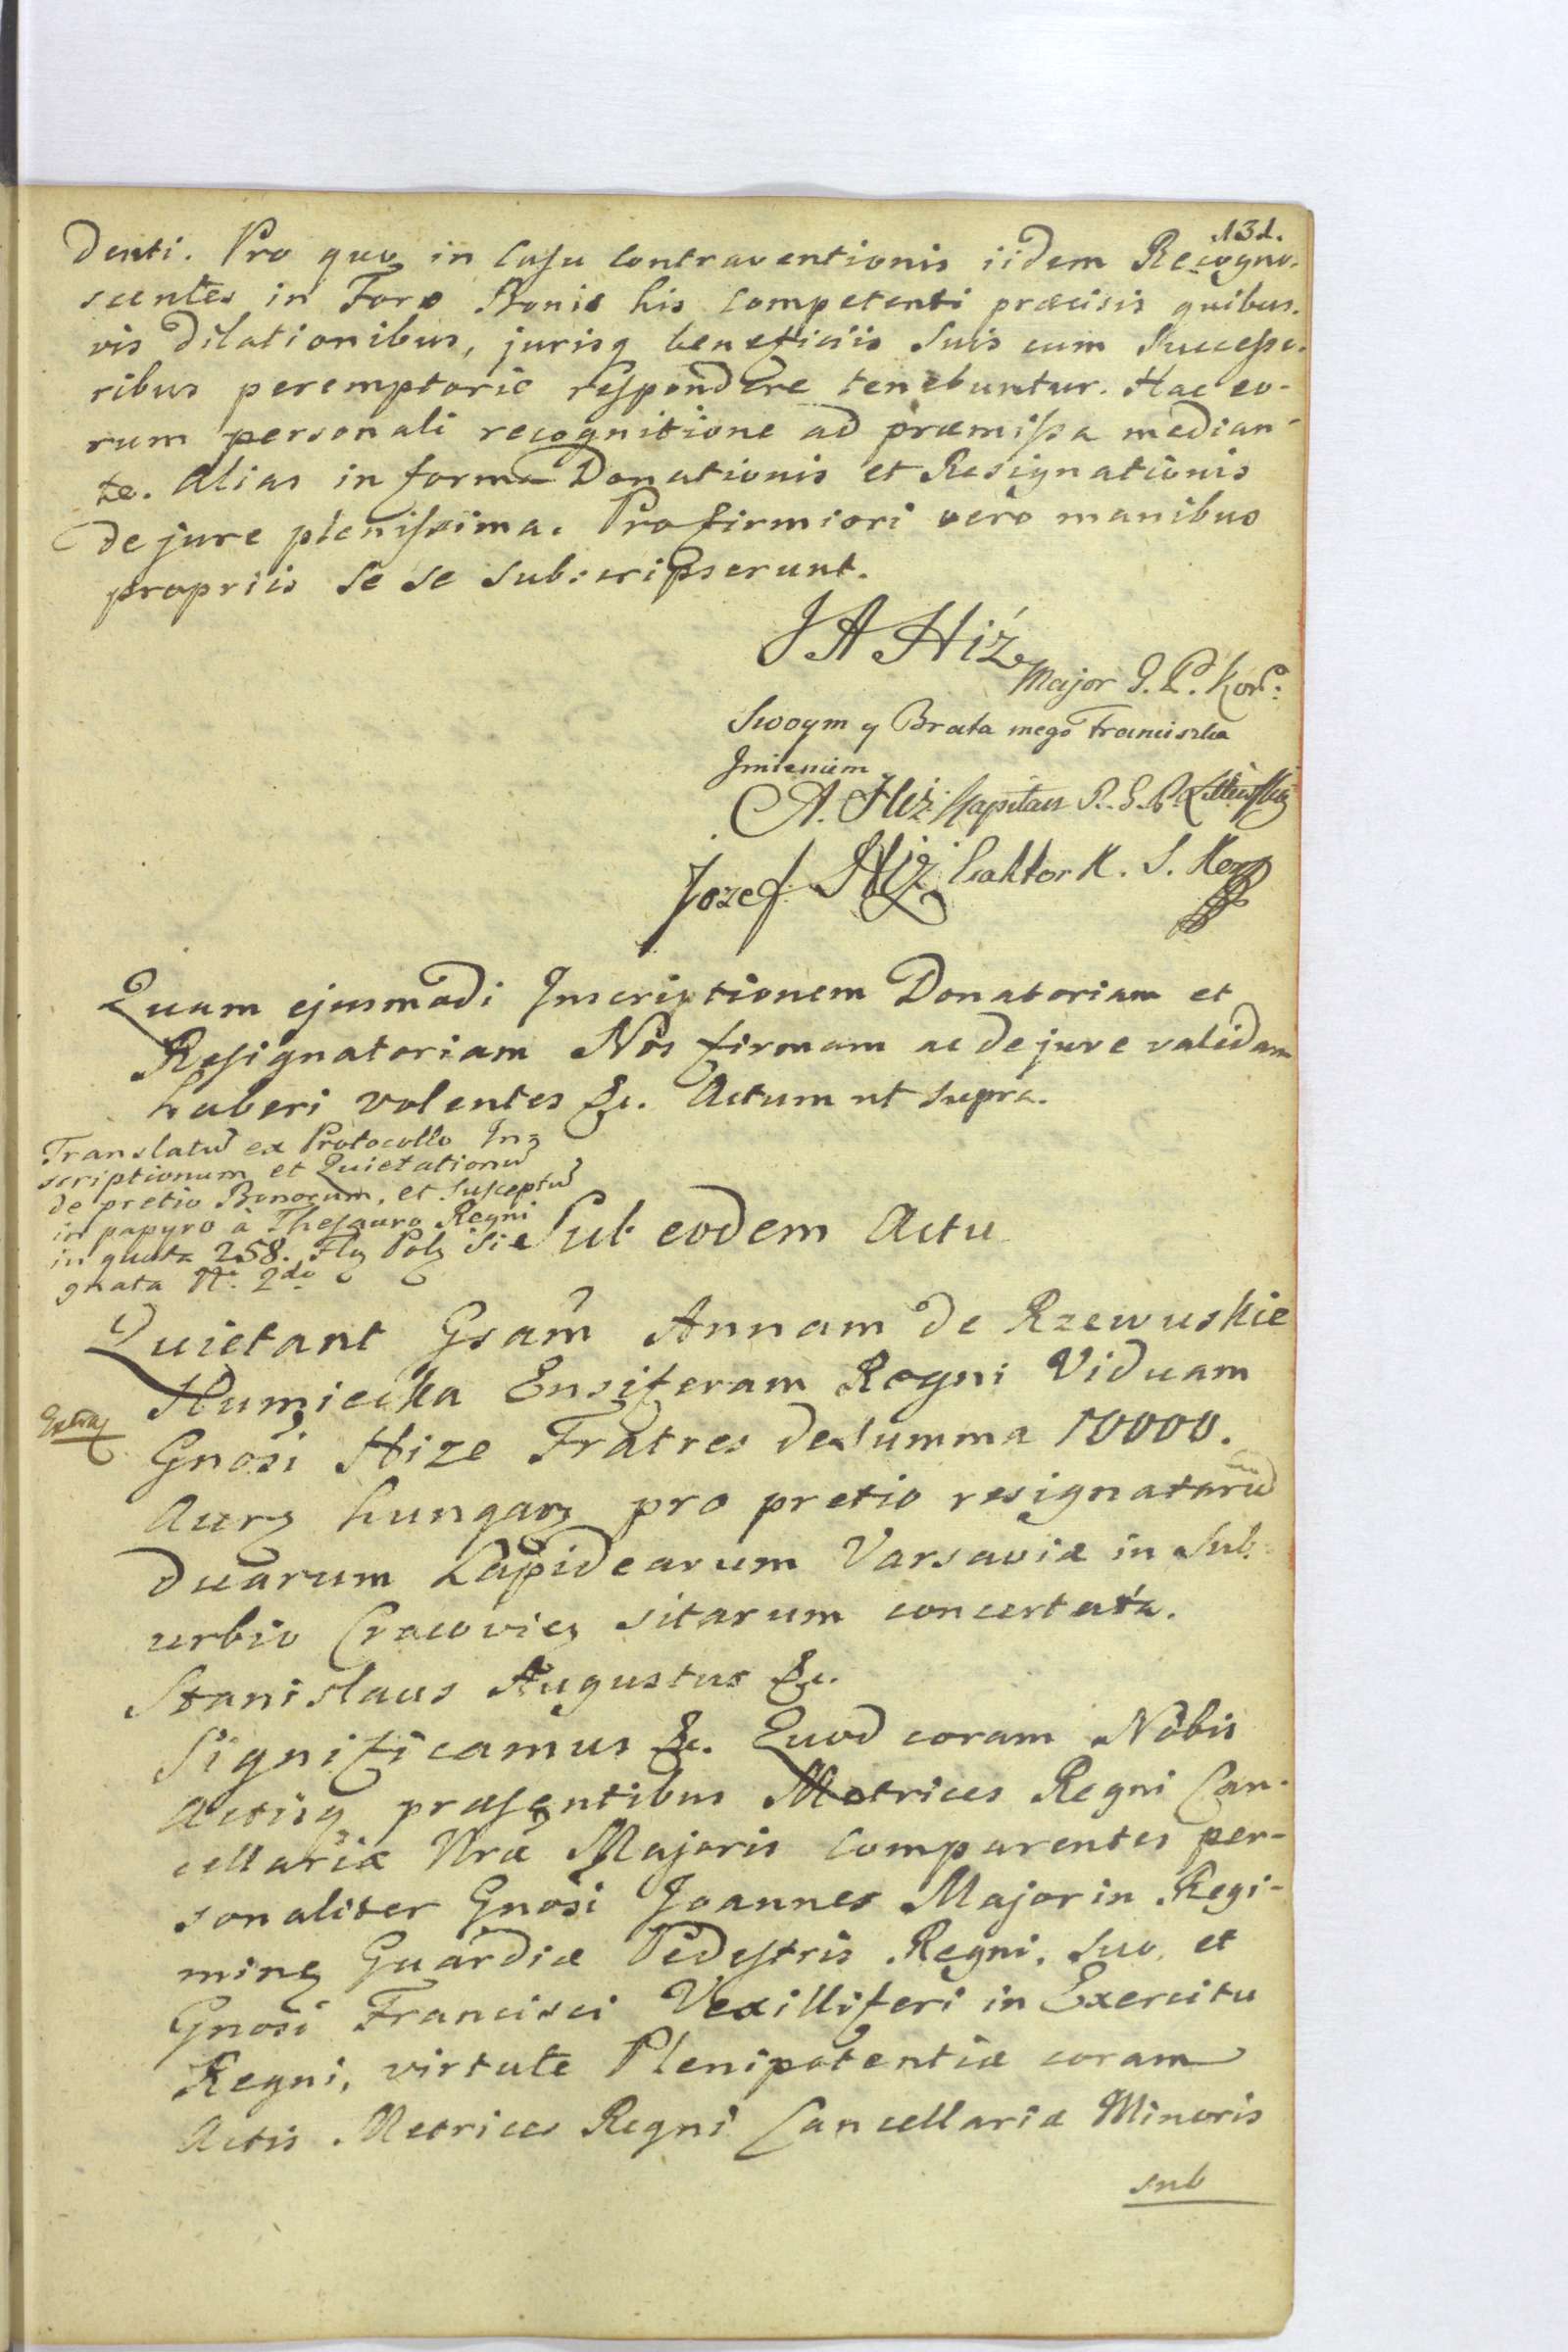 131.
denti. Pro quo in Casu Contraventionis iidem Recogno-
scentes in Foro Bonis his Competenti præcisis quibus-
vis dilationibus, jurisq beneficiis Suis cum Successo-
ribus peremptorie respondere tenebuntur. Hac eo-
rum personali recognitione ad præmissa median-
te. Alias in forma Donationis et Resignationis
de jure plenissima. Pro firmiori vero manibus
propriis se se subscripserunt.
J A Hiż
Major G. P. Kor:
Swoym y Brata mego Franciszka
Jmieniem
A. Hiż Kapitan
Jozef Hiż K.
Quam ejusmodi Inscriptionem Donatoriam et
Resignatoriam Nos firmam ac de jure validam
haberi volentes &c. Actum ut supra.
Translatu ex Protocollo In-
scriptionum et Quietationu
de pretio Bonorum, et susceptu
in papyro à Thesauro Regni
in quota 258. Flz Polz Si-
gnata No. 2do
Sub eodem Actu
Quietant Gsam Annam de Rzewuskie
Humiecka Ensiferam Regni Viduam
Gnosi Hize Fratres de Summa 10000.
Aurz hungarz pro pretio resignataru
duarum Lapidearum Varsaviæ in Sub-
urbio Cracovie sitarum concertata.
Stanislaus Augustus &c.
Significamus &c. Quod coram Nobis
Actisq præsentibus Metrices Regni Can-
cellariæ Nræ Majoris Comparentes per-
sonaliter Gnosi Joannes Major in Regi-
mine Guardiæ Pedestris Regni, suo, et
Gnosi Francisci Vexilliferi in Exercitu
Regni, virtute Plenipotentiæ coram
Actis Metrices Regni Cancellariæ Minoris
sub